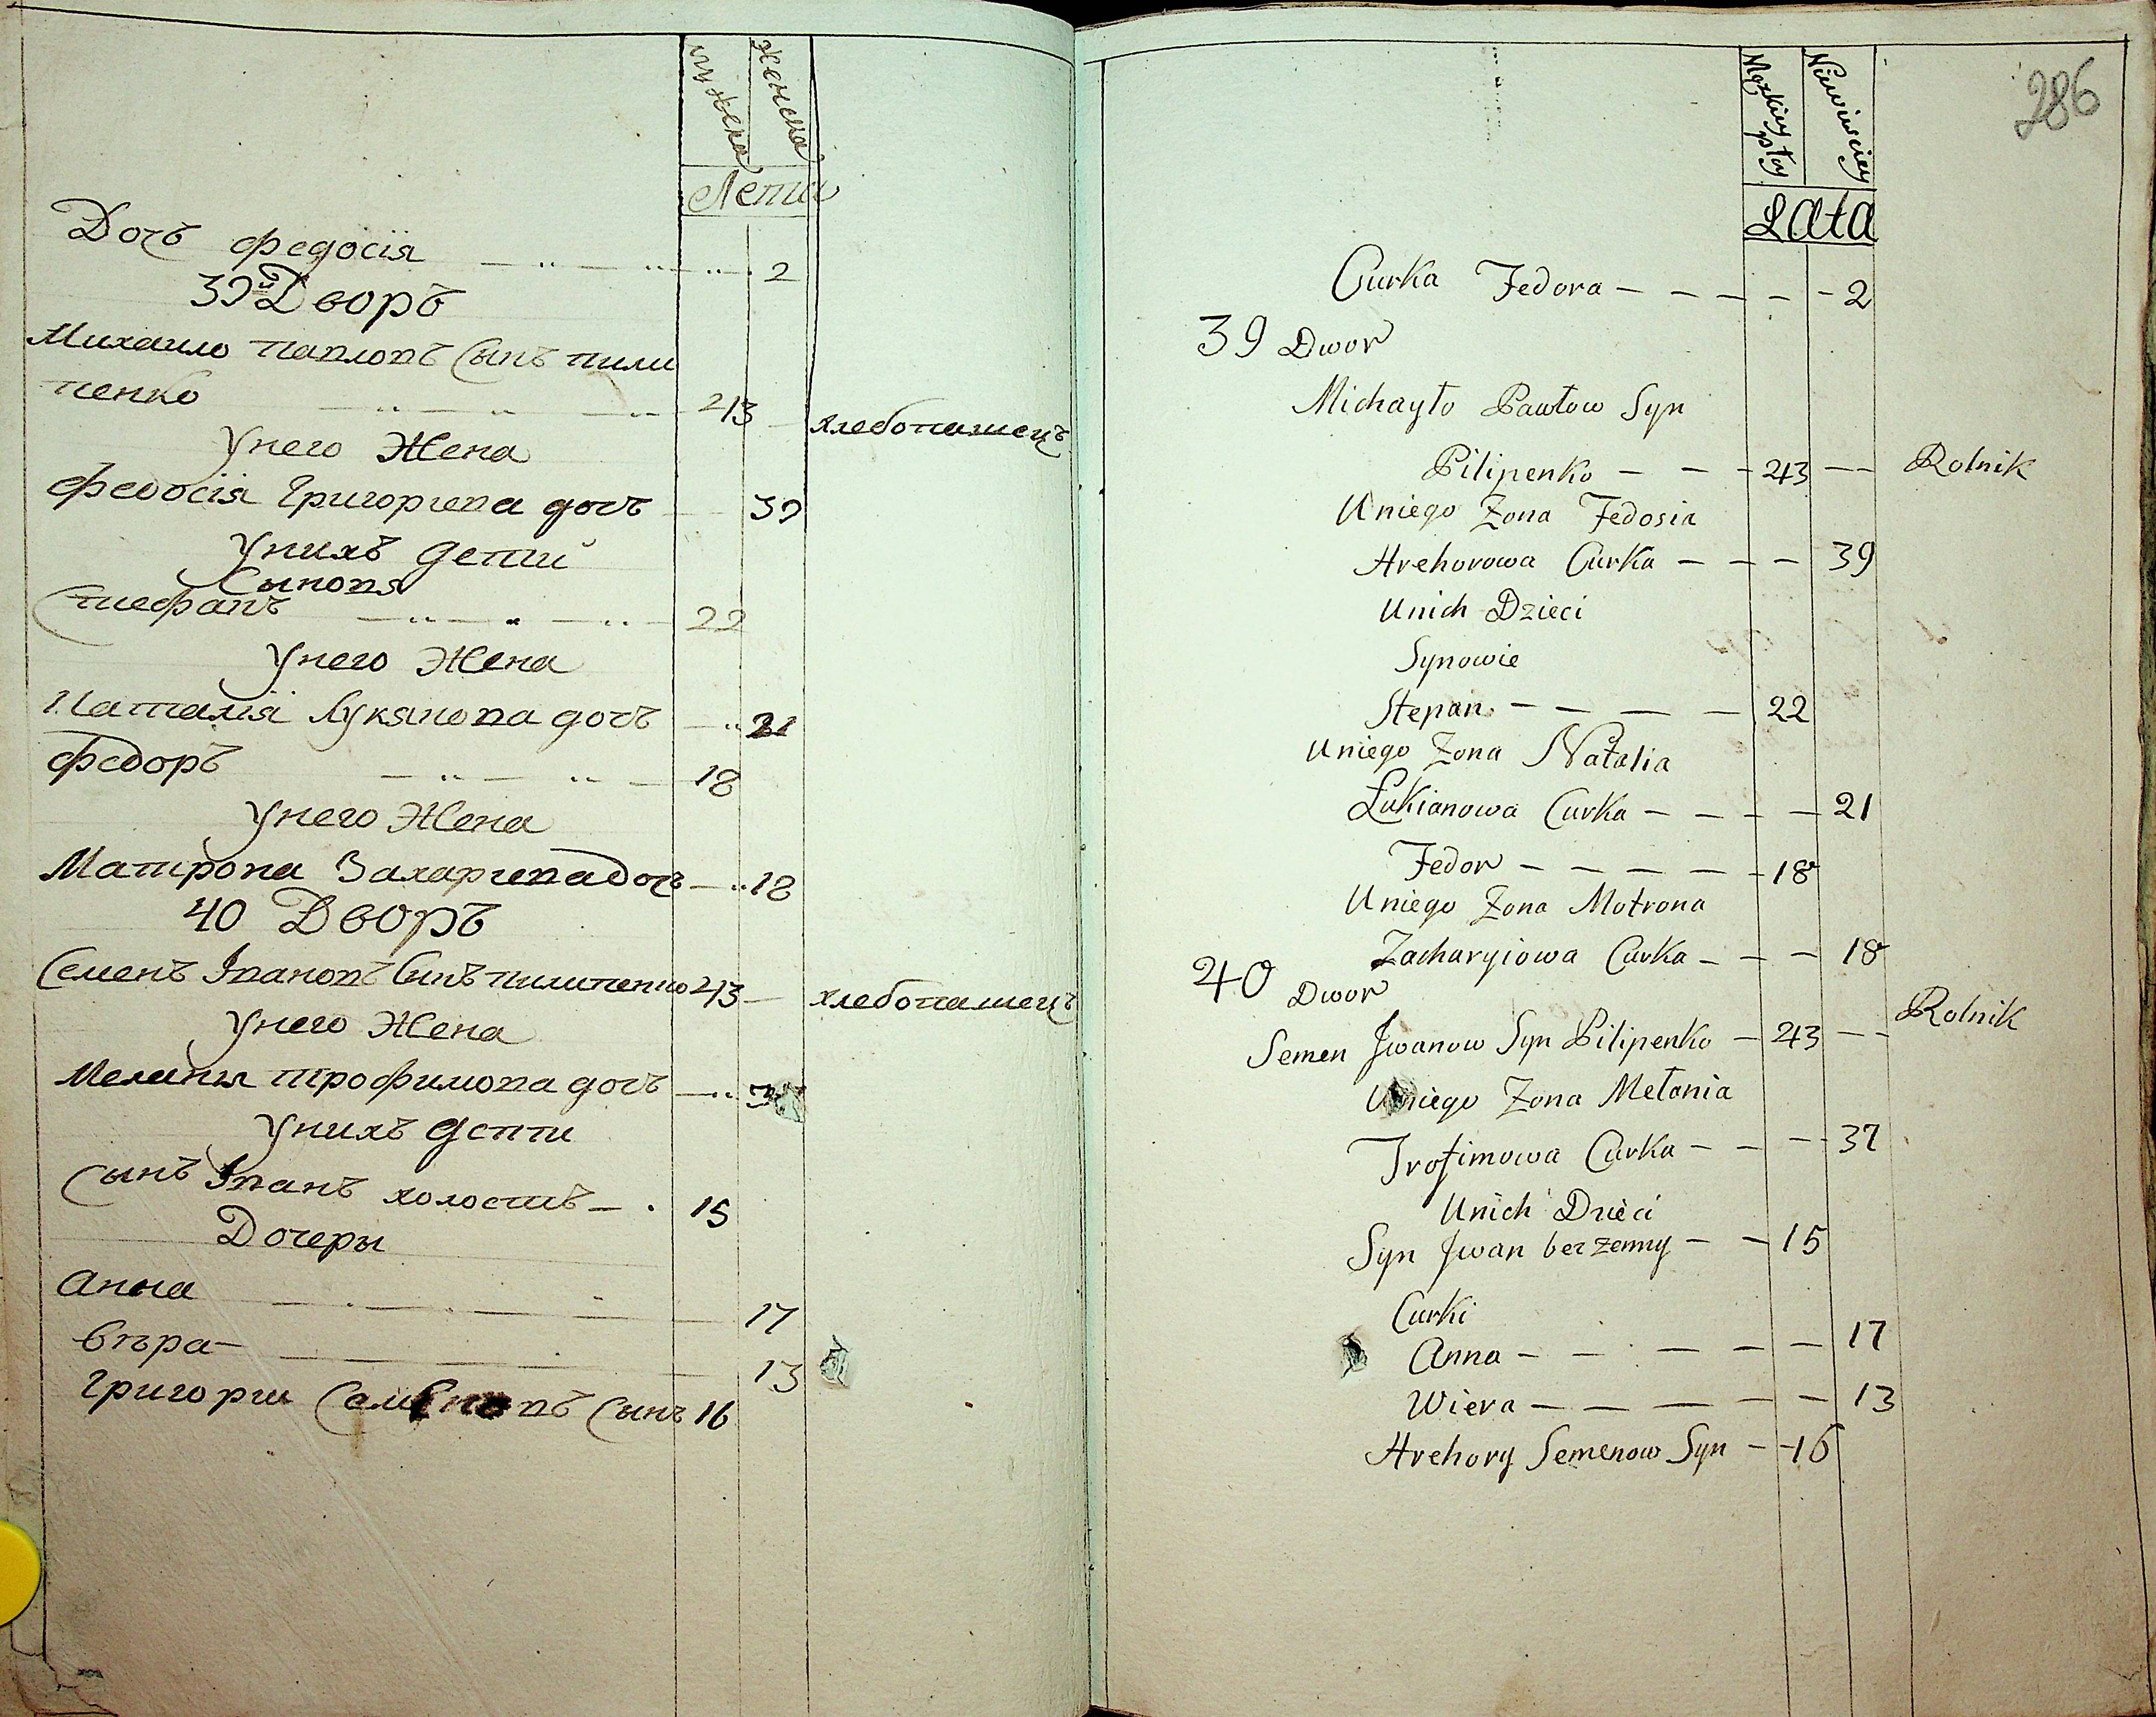 мужеска
женска
Лети
Дочъ федосія 2
39й Дворъ
Михаило павловъ Сынъ пили
пенко 43 хлебопашецъ
Унего Жена
федосія Григориева дочъ 39
Унихъ Дети
Сыновя
Стефанъ 22
Унего Жена
Наталія Лукянова дочъ 21
федоръ 18
Унего Жена
Матрона Захариева дочъ 18
40 Дворъ
Семенъ Iвановъ Синъ пилипенко 43 хлебопашецъ
Унего Жена
Меланья трофимова дочъ 3
Унихъ Дети
Сынъ Iванъ холостъ 15
Дочеры
Анна 17
Вѣра 13
Григории Семеновъ Сынъ 16
286
Męzkiey płcy
Niewiesciey
Lata
Curka Fedora 2
39 Dwor
Michayło Pawłow Syn
Pilipenko 43 Rolnik
Uniego Zona Fedosia
Hrehorowa Curka 39
Unich Dzieci
Synowie
Stepan 22
Uniego Zona Natalia
Łukianowa Curka 21
Fedor 18
Uniego Zona Motrona
Zacharyiowa Curka 18
40 Dwor
Semen Jwanow Syn Pilipenko 43 Rolnik
Uniego Zona Melania
Trofimowa Curka 37
Unich Dzieci
Syn Jwan bezzenny 15
Curki
Anna 17
Wiera 13
Hrehory Semenow Syn 16